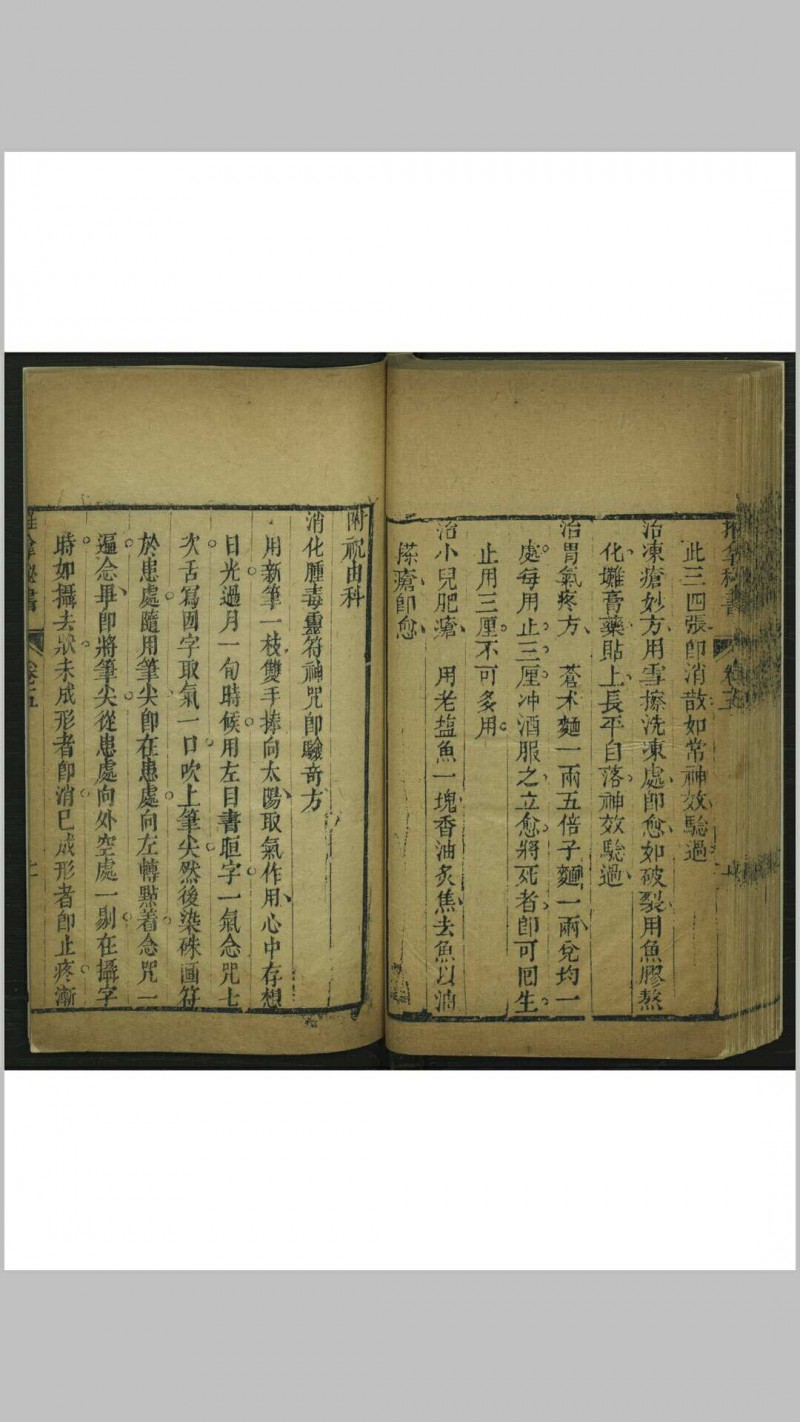 此三四張即消散如常神效驗過
治凍瘡妙方用雪擦洗凍處即愈如破裂用魚膠熬
化攤膏藥貼上長平自落神效驗過
治胃氣疼方　蒼术麵一兩五倍子麵一兩兌均一
處每用止三厘冲酒服之立愈將死者即可囘生
止用三厘不可多用
治小兒肥瘡　用老塩魚一塊香油炙焦去魚以油
搽瘡即愈
附祝由科
消化腫毒靈符神咒即驗奇方
用新筆一枝雙手捧向太陽取氣作用心中存想
日光過月一旬時候用左目書𣆶字一氣念咒七
次舌寫囻字取氣一口吹上筆尖然後染硃画符
於患處隨用筆尖即在患處向左轉㸃着念咒一
遍念畢即將筆尖從患處向外空處一剔在攝字
時如攝去狀未成形者即消已成形者即止疼漸
卷五